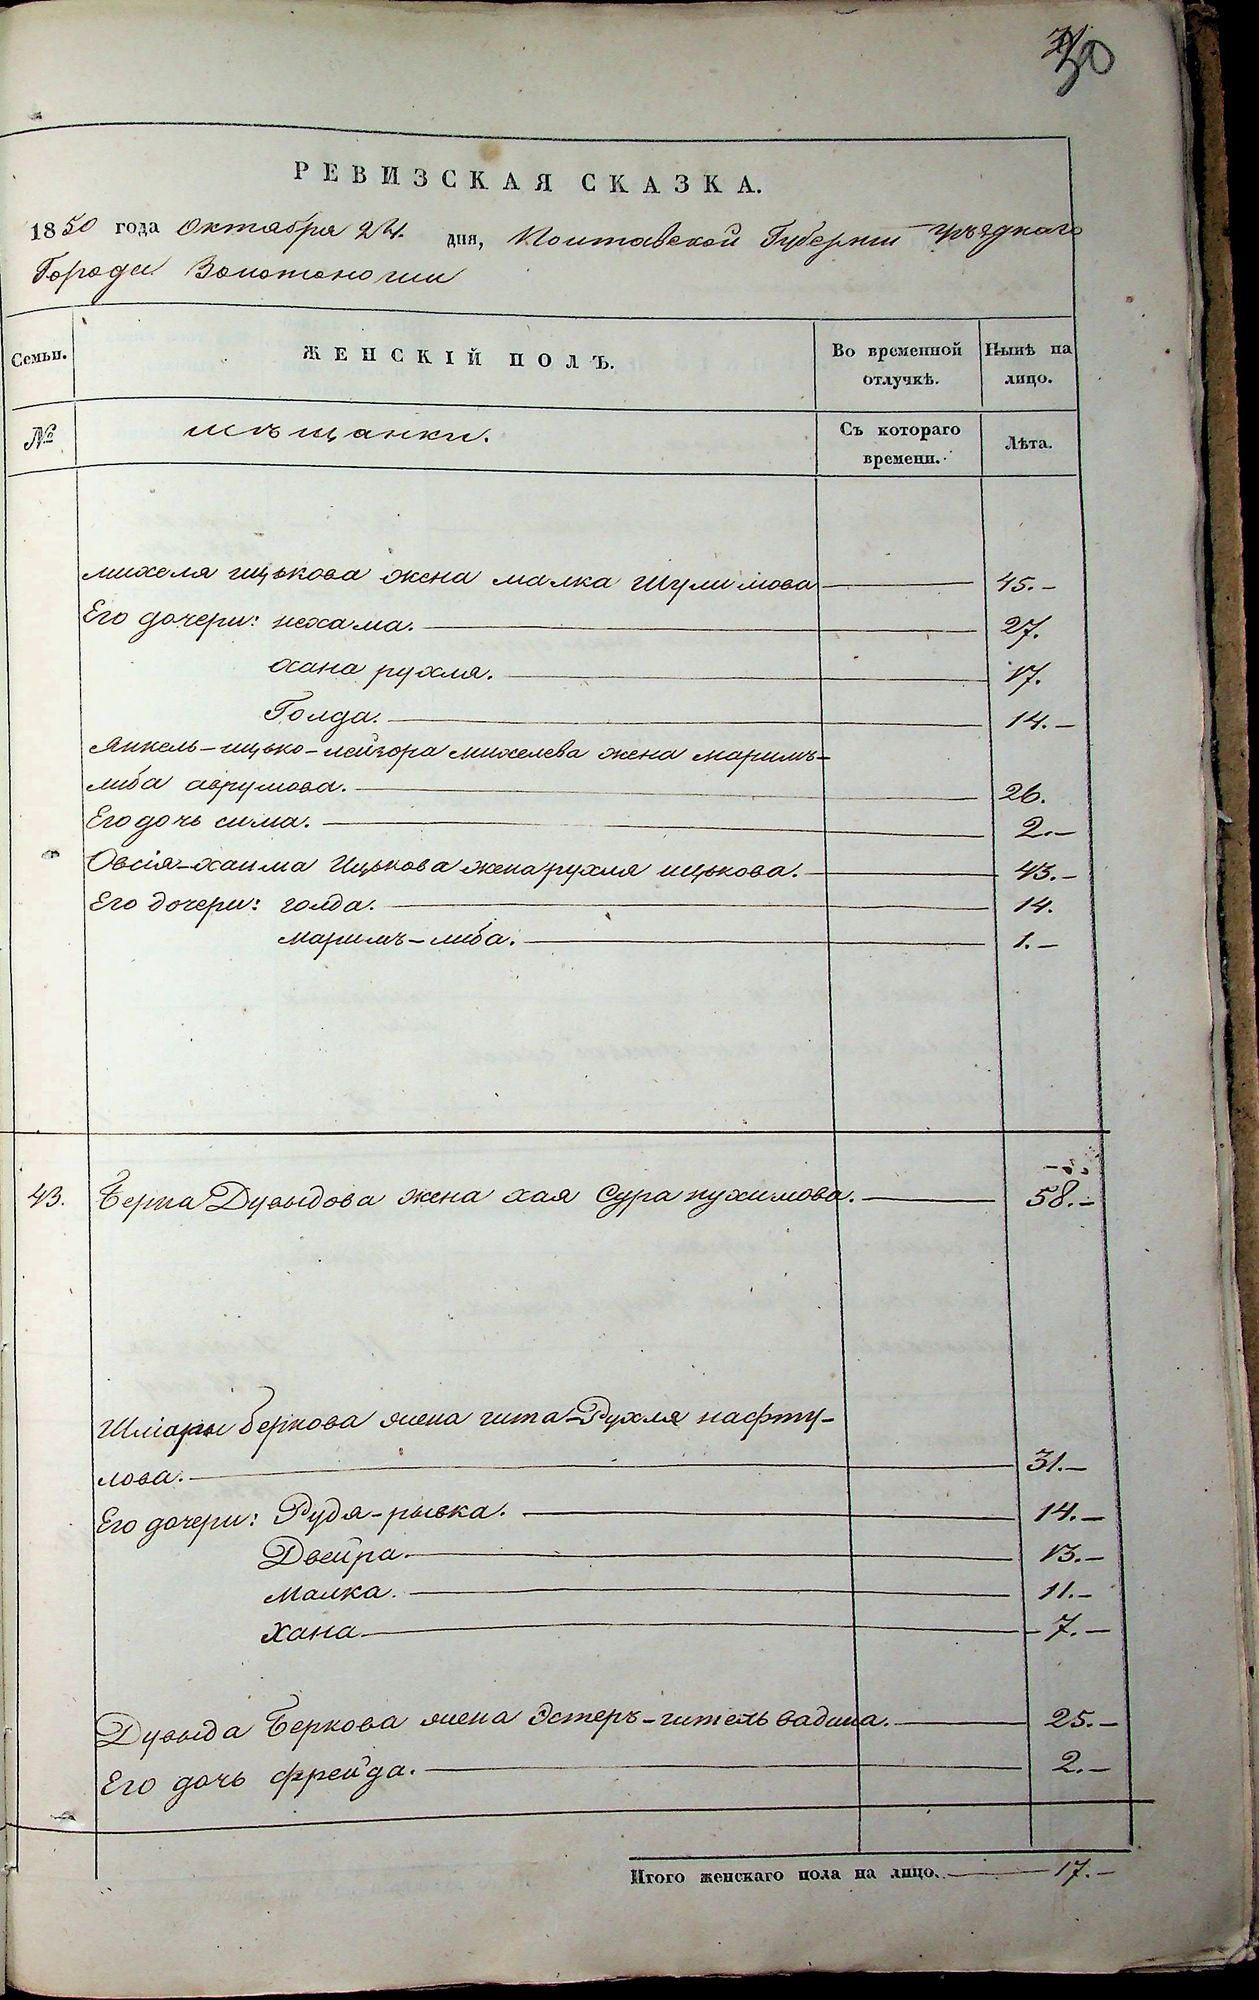 30
РЕВИЗСКАЯ СКАЗКА.
1850 года Октября 24. дня, Полтавской Губернии уѣзднаго
Города Золотоноши
Семьи.
ЖЕНСКІЙ ПОЛЪ.
Во временной отлучкѣ.
Нынѣ на лицо.
№
мѣщанки.
Съ котораго времени.
Лѣта.
михеля ицькова жена малка Шулимова 45.
Его дочери: нехама. 27.
хана рухля. 17.
Голда. 14.
Янкель-ицько-лейзора михелева жена маримъ-
либа аврумова. 26.
Его дочь сима. 2.
Овсія-хаима Ицькова жена рухля ицькова. 43.
Его дочери: голда. 14.
маримъ-либа. 1.
43. Берка Дувыдова жена хая Сура нухимова. 58.
Шмары беркова жена гита-Рухля нафту-
лова. 31.
Его дочери: Рудя-рывка. 14.
Двейра. 13.
малка. 11.
Хана 7.
Дувыда Беркова жена Эстеръ-гитель 25.
Его дочь фрейда. 2.
Итого женскаго пола на лицо. 17.